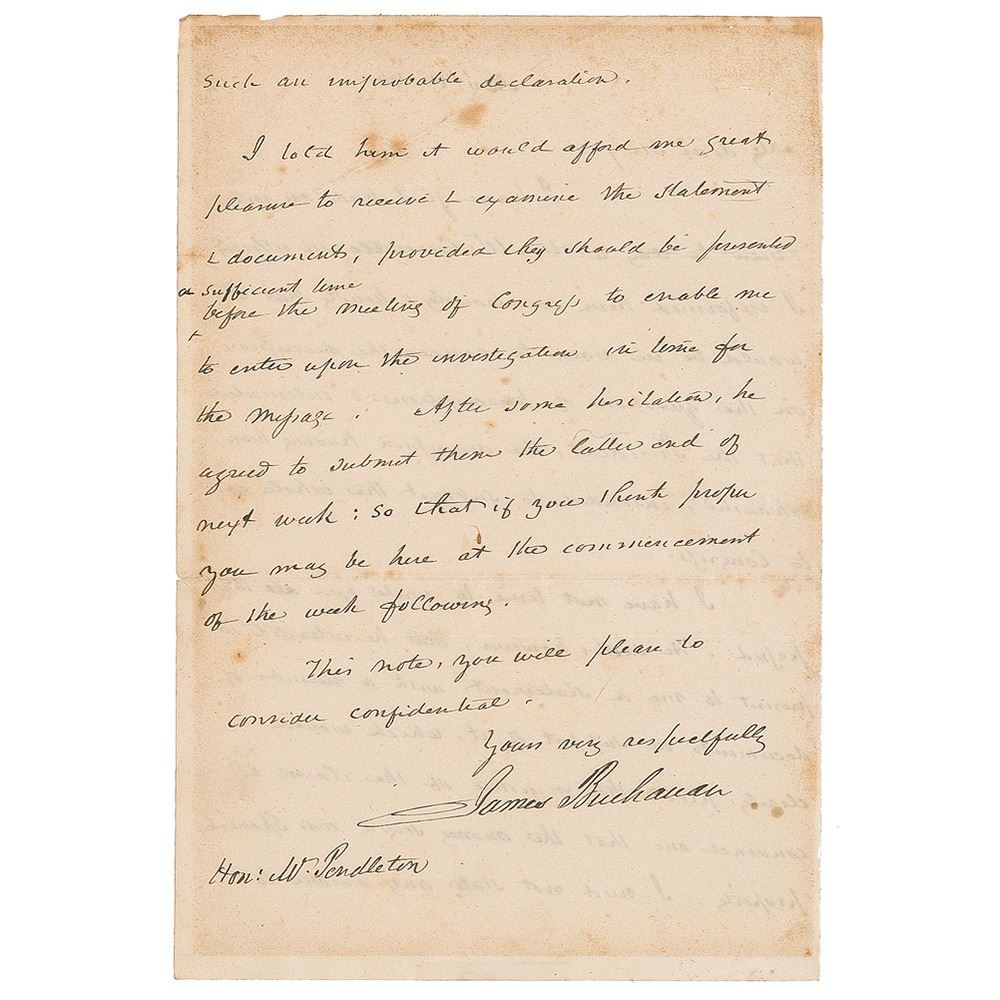 such an improbable declaration.
I told him it would afford me great
pleasure to receive & examine the statement
& documents, provided they should be presented
a sufficient time
before the meeting of Congress to enable me
to enter upon the investigation in time for
the message. After some hesitation, he
agreed to submit them the latter end of
next week: so that if you think proper
you may be here at the commencement
of the week following.
This note, you will please to
consider confidential.
Yours very respectfully
James Buchanan
Hon: Mr. Pendleton